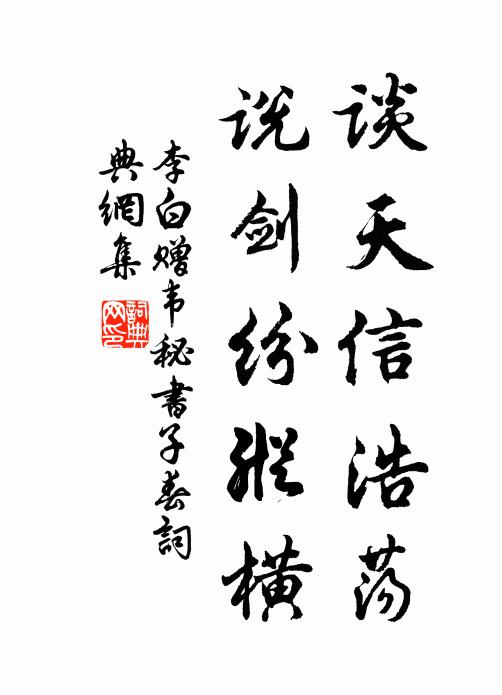 谈天信浩荡
说剑纷纵横
李白赠韦秘书子春词
典網集
詞典网印